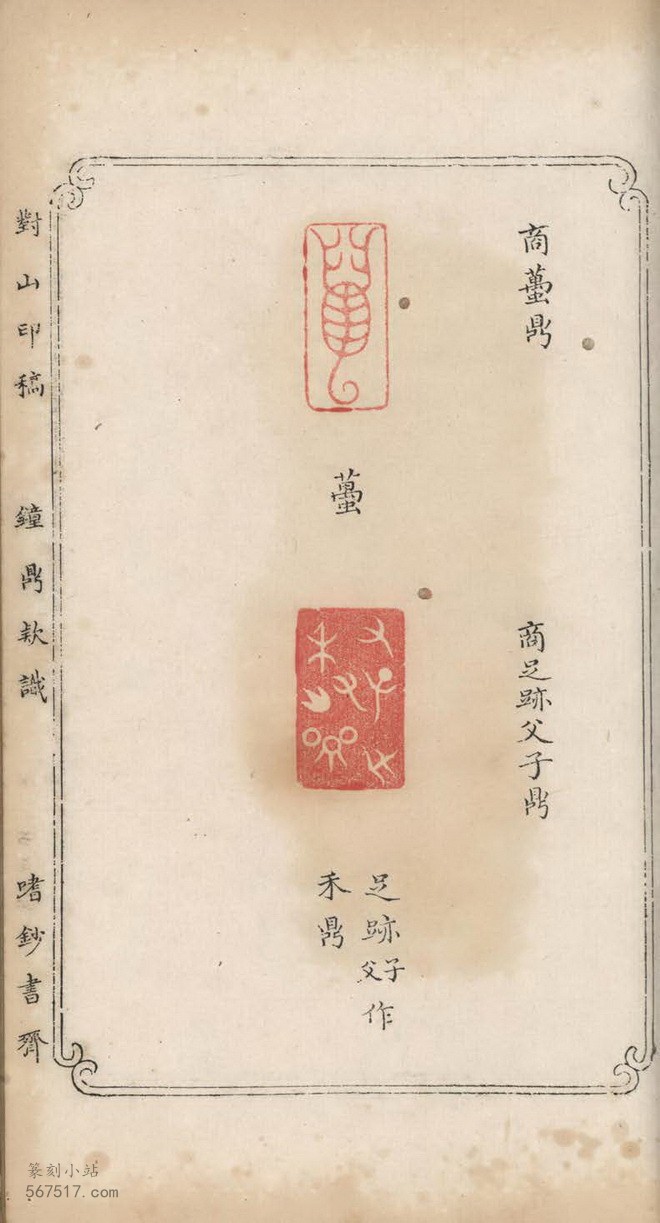 商蠆鼎
蠆
商足跡父子鼎
足跡父子作
禾鼎
對山印稿
鐘鼎欵識
嗜鈔書齋
篆刻小站
567517.com